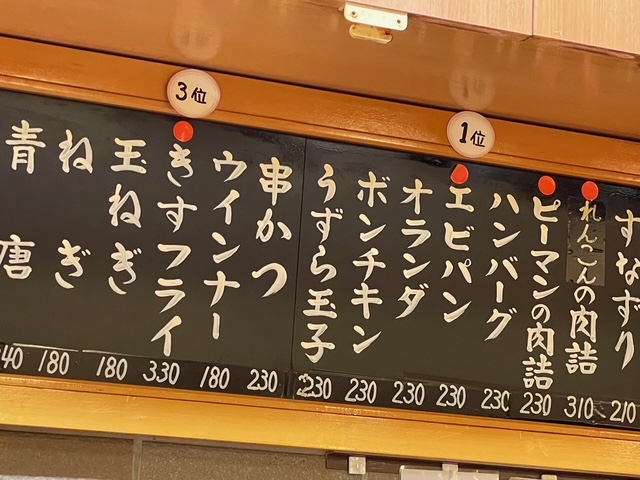 1位
3位
すなずり 210
れんこんの肉詰 310
ピーマンの肉詰 230
ハンバーグ 230
エビパン 230
オランダ 230
ボンチキン 230
うずら玉子 230
串かつ 230
ウインナー 180
きすフライ 330
玉ねぎ 180
ねぎ 180
青唐 40